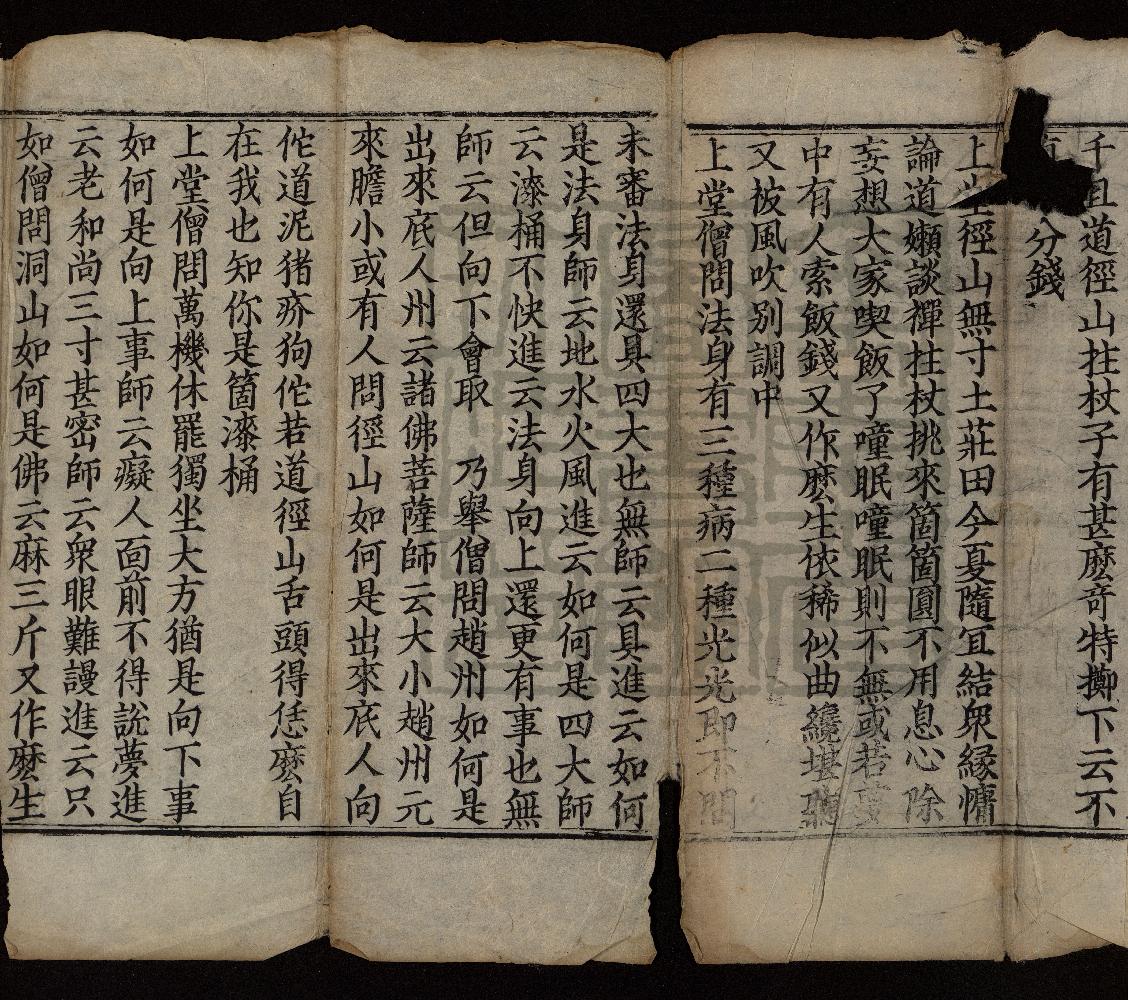 千且道徑山拄杖子有甚麽奇特擲下云不
分錢
上堂徑山無寸土莊田今夏隨宜結衆緣慵
論道嬾談禪拄杖挑來箇箇圓不用息心除
妄想大家喫飯了噇眠噇眠則不無或若夏
中有人索飯錢又作麽生依稀似曲纔堪聽
又被風吹別調中
上堂僧問法身有三種病二種光光即不問
未審法身還具四大也無師云具進云如何
是法身師云地水火風進云如何是四大師
云漆桶不快進云法身向上還更有事也無
師云但向下會取　乃舉僧問趙州如何是
出來底人州云諸佛菩薩師云大小趙州元
來膽小或有人問徑山如何是出來底人向
佗道泥猪疥狗佗若道徑山舌頭得恁麽自
在我也知你是箇漆桶
上堂僧問萬機休罷獨坐大方猶是向下事
如何是向上事師云癡人面前不得説夢進
云老和尚三寸甚密師云衆眼難謾進云只
如僧問洞山如何是佛云麻三斤又作麽生